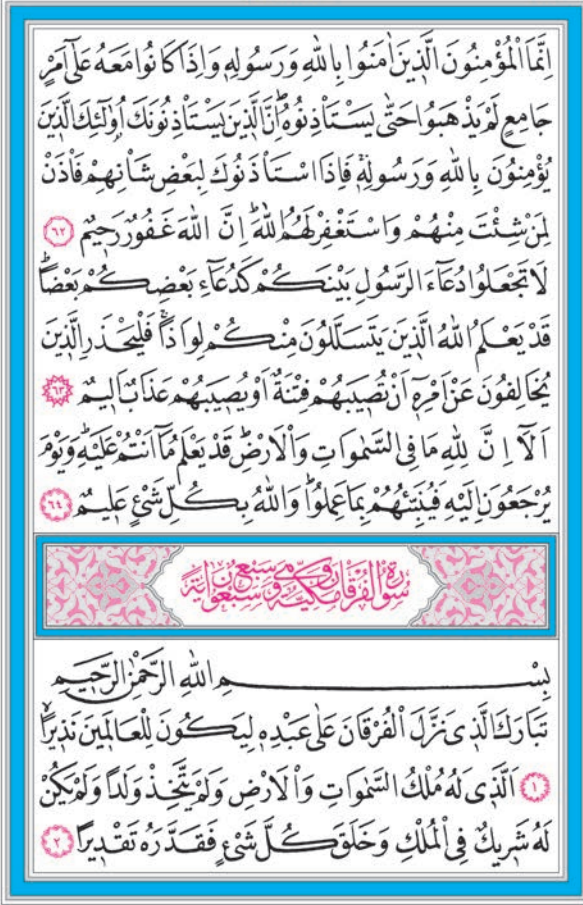 اِنَّمَا الْمُؤْمِنُونَ الَّذ۪ينَ اٰمَنُوا بِاللّٰهِ وَرَسُولِه۪ وَاِذَا كَانُوا مَعَهُ عَلٰٓى اَمْرٍ
جَامِعٍ لَمْ يَذْهَبُوا حَتّٰى يَسْتَأْذِنُوهُۜ اِنَّ الَّذ۪ينَ يَسْتَأْذِنُونَكَ اُو۬لٰٓئِكَ الَّذ۪ينَ
يُؤْمِنُونَ بِاللّٰهِ وَرَسُولِه۪ۚ فَاِذَا اسْتَأْذَنُوكَ لِبَعْضِ شَأْنِهِمْ فَأْذَنْ
لِمَنْ شِئْتَ مِنْهُمْ وَاسْتَغْفِرْ لَهُمُ اللّٰهَۜ اِنَّ اللّٰهَ غَفُورٌ رَح۪يمٌ ﴿٦٢﴾
لَا تَجْعَلُوا دُعَٓاءَ الرَّسُولِ بَيْنَكُمْ كَدُعَٓاءِ بَعْضِكُمْ بَعْضًاۜ
قَدْ يَعْلَمُ اللّٰهُ الَّذ۪ينَ يَتَسَلَّلُونَ مِنْكُمْ لِوَاذًاۚ فَلْيَحْذَرِ الَّذ۪ينَ
يُخَالِفُونَ عَنْ اَمْرِه۪ٓ اَنْ تُص۪يبَهُمْ فِتْنَةٌ اَوْ يُص۪يبَهُمْ عَذَابٌ اَل۪يمٌ ﴿٦٣﴾
اَلَٓا اِنَّ لِلّٰهِ مَا فِي السَّمٰوَاتِ وَالْاَرْضِۜ قَدْ يَعْلَمُ مَٓا اَنْتُمْ عَلَيْهِۜ وَيَوْمَ
يُرْجَعُونَ اِلَيْهِ فَيُنَبِّئُهُمْ بِمَا عَمِلُواۜ وَاللّٰهُ بِكُلِّ شَيْءٍ عَل۪يمٌ ﴿٦٤﴾
سُورَةُ الْفُرْقَانِ مَكِّيَّةٌ وَهِيَ سَبْعٌ وَسَبْعُونَ اٰيَةً
بِسْمِ اللّٰهِ الرَّحْمٰنِ الرَّح۪يمِ
تَبَارَكَ الَّذ۪ي نَزَّلَ الْفُرْقَانَ عَلٰى عَبْدِه۪ لِيَكُونَ لِلْعَالَم۪ينَ نَذ۪يرًاۙ
﴿١﴾ اَلَّذ۪ي لَهُ مُلْكُ السَّمٰوَاتِ وَالْاَرْضِ وَلَمْ يَتَّخِذْ وَلَدًا وَلَمْ يَكُنْ
لَهُ شَر۪يكٌ فِي الْمُلْكِ وَخَلَقَ كُلَّ شَيْءٍ فَقَدَّرَهُ تَقْد۪يرًا ﴿٢﴾